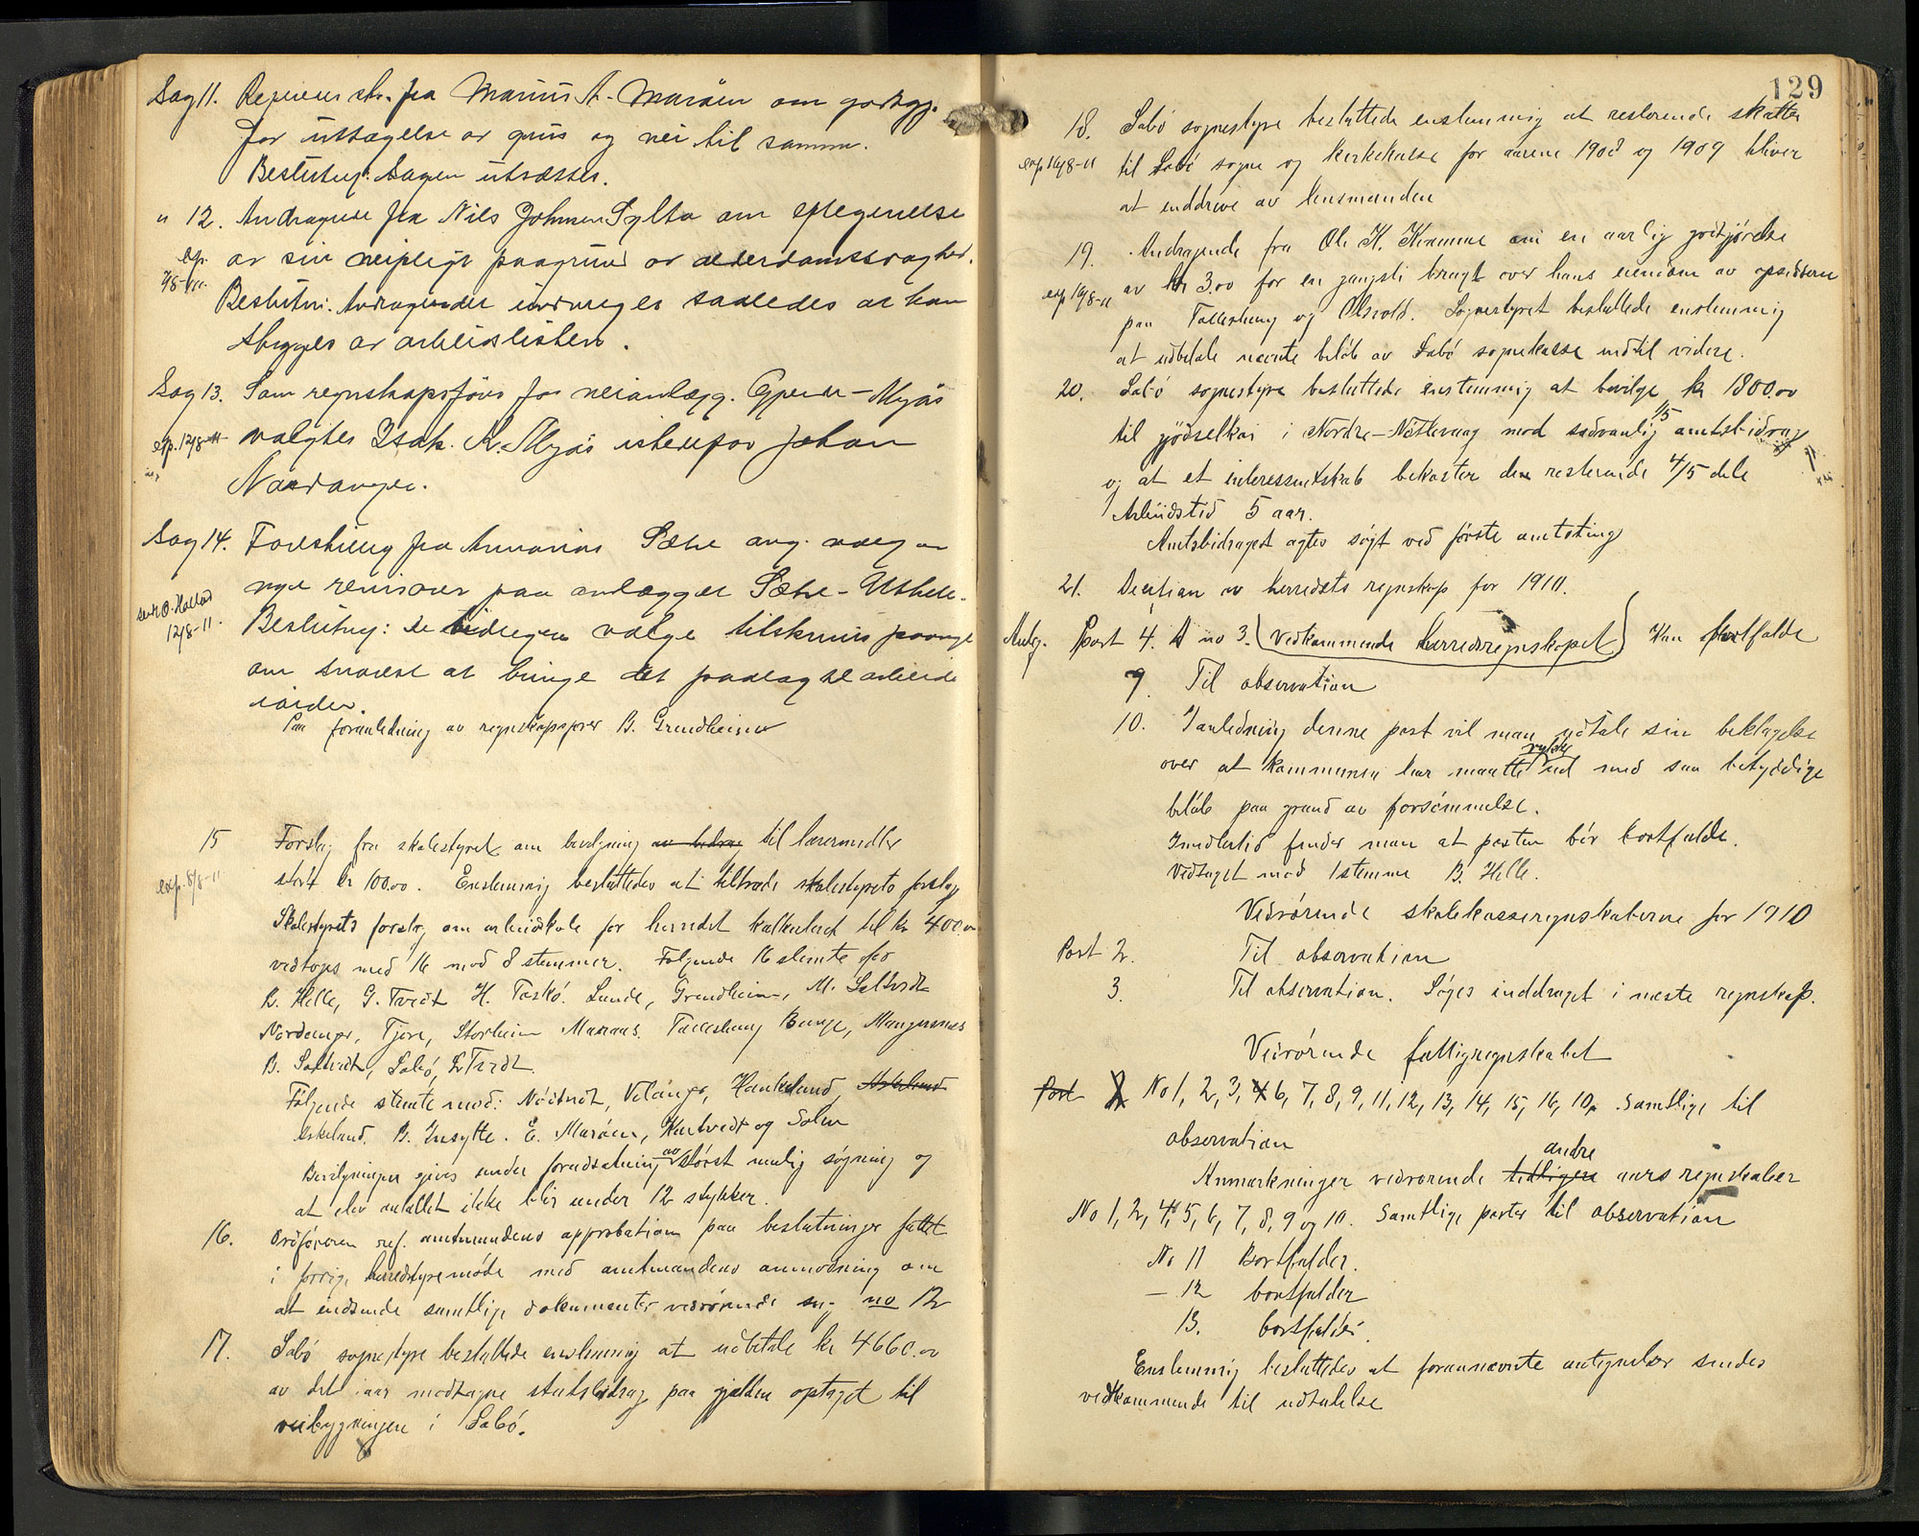 Sag 11. Regnever skr. fra Marius A. Maråen om godtgj.
for uttagelse av grus og vei til samme.
Beslutng: Sagen utsættes.
" 12. Andragende fra Nils Johnsen Sylta om eftergivelse
exp. av sin veipligt paagrund av alderdomssvaghed.
Beslutn: Andragendet indvilges saaledes at han
strygges av arbeidslisten.
Sag 13. Som regnskapsfører for veianlægg. Espeset - Mjøs
exp. 12/8-11 valgtes Isak K. Mjøs istedenfor Johan
Nordanger.
Sag 14. Forestilling fra Annanias Sæbø ang. valg av
nye revisorer paa anlægget Sæbø - Uthelle.
sendt O. Halland
12/8-11.
Beslutng: De tidligere valgte tilskrives paanyt
om snarest at bringe det paalagte arbeide
iorden.
Paa foranledning av regnskapsfører B. Grendheim
15 Forslag fra skolestyret om bevilgning av bidrag til læremidler
exp. 8/8-11 stort kr 100.00. Enstemmig besluttedes at tiltræde skolestyrets forslag
Skolestyrets forslag om arbeidskole for herredet kalkuleret til kr 400.00
vedtoges med 16 mod 8 stemmer. Følgende 16 stemte for
B. Helle, G. Tveit H. Toskó. Lunde, Grendheim, M. Soltvedt
Nordanger, Tjore, Storheim Maraas. Talleshaug Bauge, Mangersnes
B. Soltvedt, Sabó, L Tveit.
Følgende stemte mod: Nåtvedt, Vetånge, Haukeland, Askeland
Eskeland. B. Insytte. E. Maråen, Kartvedt og Solem
Bevilgningen gives under forudsætning av størst mulig søgning og
at elev antallet ikke blir under 12 stykker.
16. Ordføreren ref. amtmandens approbation paa beslutninger fattet
i forrige herredstyremøde med amtmandens anmodning om
at indsende samtlige dokumenter vedrørende sag no 12
17. Sabó sognestyre besluttede enstemmig at udbetale kr 4660.00
av det iaar modtagne statsbidrag paa gjælden optaget til
veibygningen i Sabó.
129
18. Sabó sognestyre besluttede enstemmig at resterende skatter
exp 14/8-11 til Sabó sogne og kirkekasse for aarene 1908 og 1909 bliver
at inddrive av lensmanden
19. Andragende fra Ole K. Kramme om en aarlig godtgjørelse
exp 14/8-11 av kr 3.00 for en gangsti brugt over hans eiendom av opsidderne
paa Talleshaug og Olsvold. Sognestyret besluttede enstemmig
at udbetale nævnte beløb av Sabó sognekasse indtil videre.
20. Sabó sognestyre besluttede enstemmig at bevilge kr 1800.00
til gjødselkai i Nordre-Nøtlevaag mod sædvanlig 1/5 amtsbidrag
og at et interessentskab bekoster den resterende 4/5 dele
Arbeidstid 5 aar.
Amtsbidraget agtes søgt ved første amtsting
21. Decition av herredets regnskap for 1910.
Antg. Post 4. A no 3. (vedkommende herredsregnskapet) Kan bortfalde
9. Til observation
10. I anledning denne post vil man udtale sin beklagelse
over at kommunen har maatte rykke ud med saa betyddige
beløb paa grund av forsømmelse.
Imidlertid finder man at posten bør bortfalde.
Vedtaget mod 1 stemme B. Helle.
Vedrørende skolekasseregnskaberne for 1910
Post 2. Til observation
3. Til observation. Søges inddraget i næste regnskap.
Vedrørende fattigregnskabet
Post No 1, 2, 3, 4 6, 7, 8, 9, 11, 12, 13, 14, 15, 16, 10. samtlige til
observation
Anmærkninger vedrørende tidligere andre aars regnskaber
No 1, 2, 4, 5, 6, 7, 8, 9 og 10. Samtlige poster til observation
No 11 Bortfalder.
- 12 bortfalder
13. bortfalder.
Enstemmig besluttedes at forannævnte antegnelser sendes
vedkommende til udtalelse